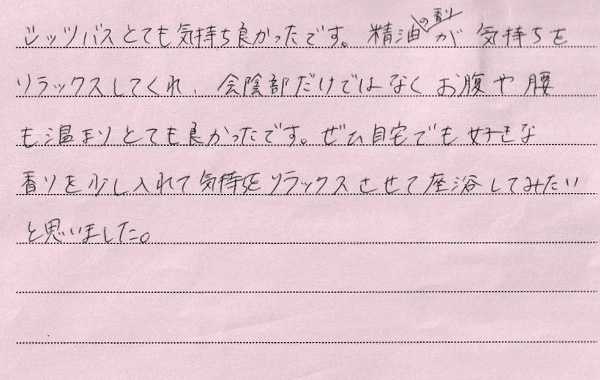 シッツバスとても気持ち良かったです。精油の香りが気持ちを
リラックスしてくれ、会陰部だけではなくお腹や腰
も温まりとても良かったです。ぜひ自宅でも好きな
香りを少し入れて気持をリラックスさせて座浴してみたい
と思いました。